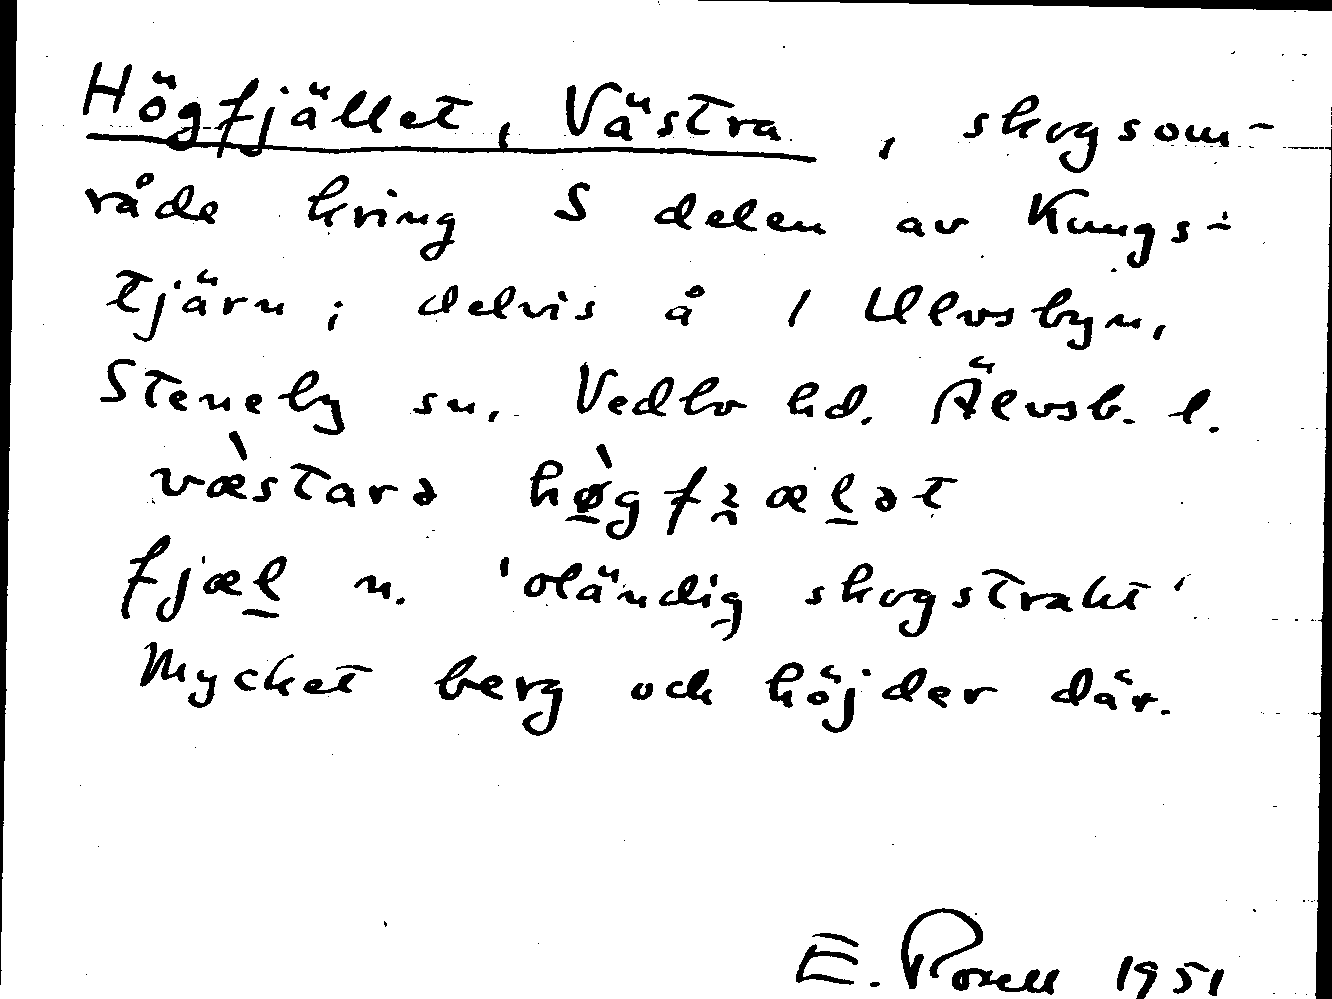 Högfjället, Västra, skogsom-
råde kring S delen av Kungs-
tjärn; delvis å 1 Ulvsbyn,
Steneby sn. Vedbo hd. Älvsb. l.
væ̀starə hø̠̀gfʓæl̠ət
fjæl̠ n. 'oländig skogstrakt'
Mycket berg och höjder där.
E. Roxell 1951